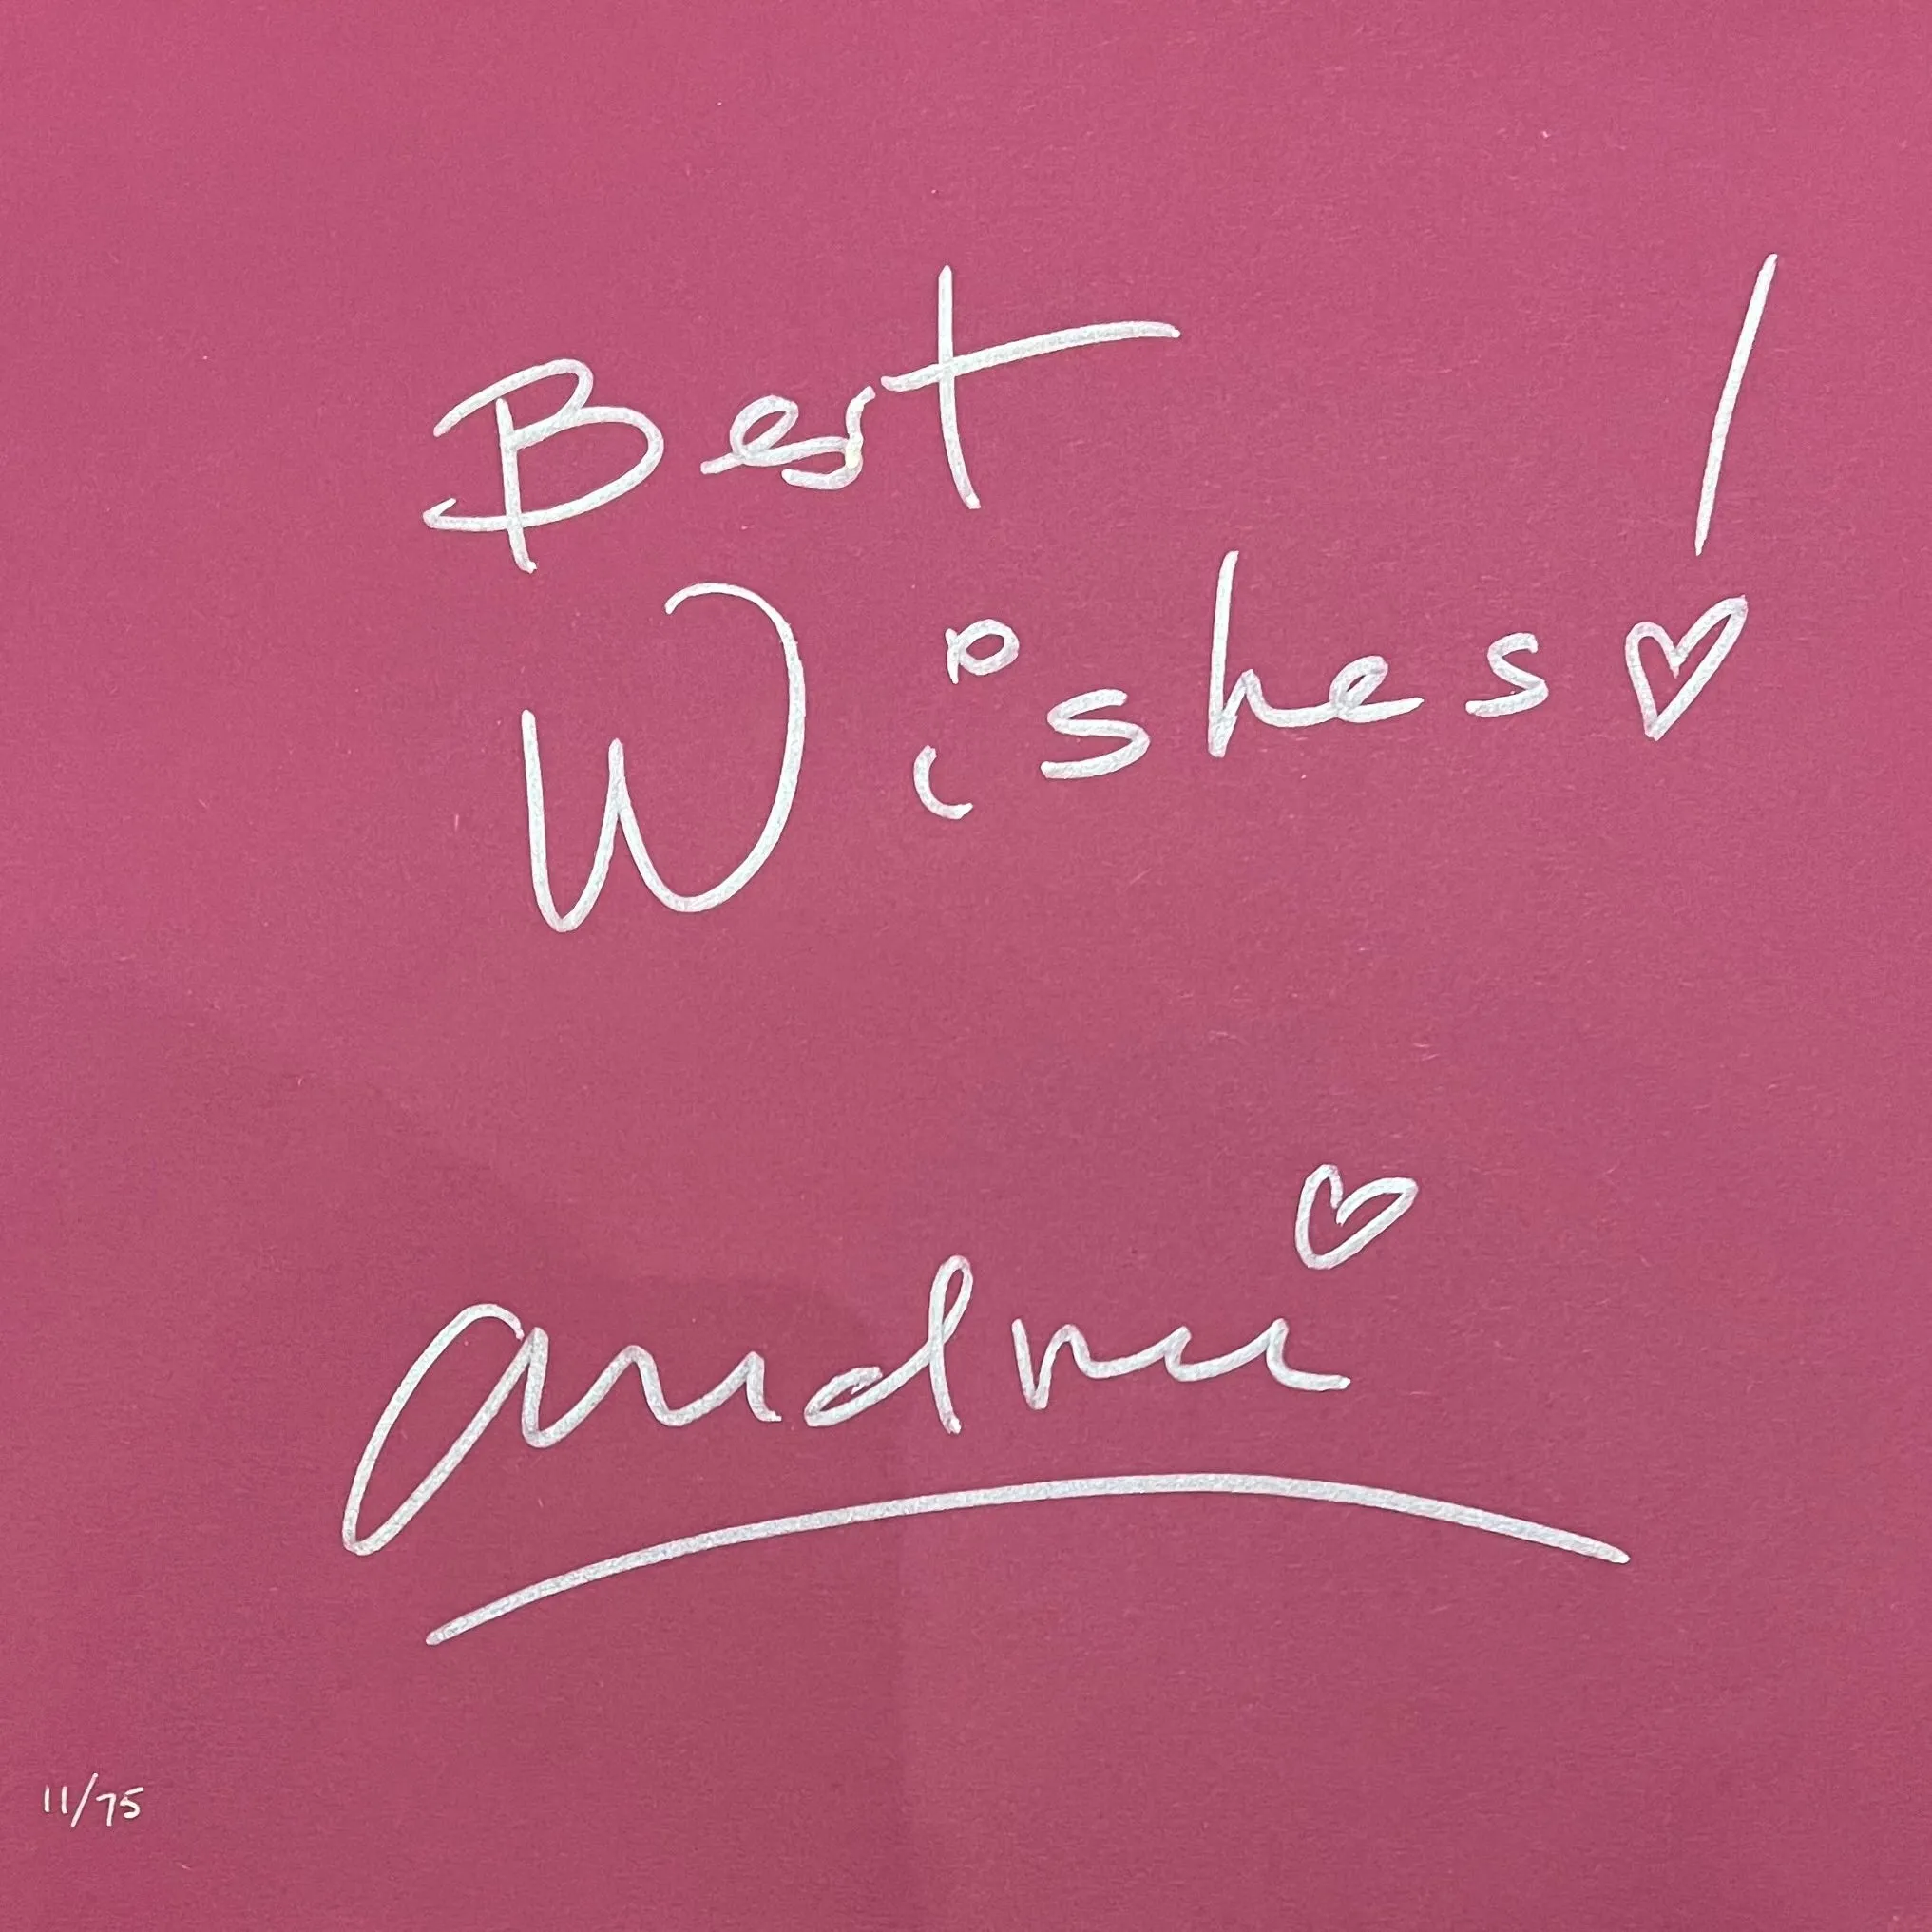 Best
Wishes!
Andrii
11/75